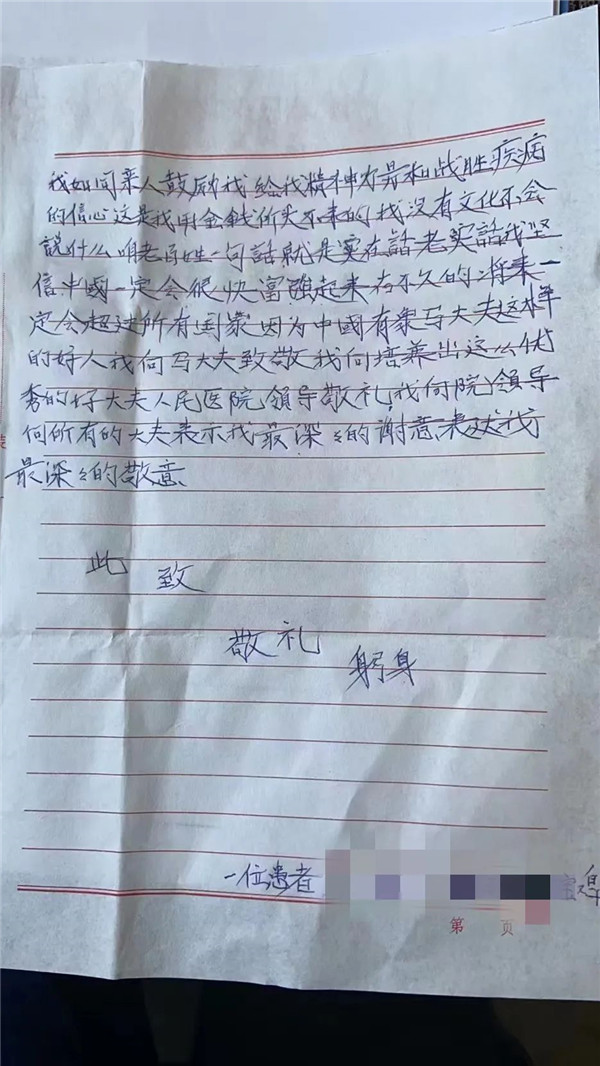 我如同亲人鼓励我给我精神力量和战胜疾病
的信心这是我用金钱所买不来的我没有文化不会
說什么咱老百姓一句話就是实在話老实話我坚
信中國一定会很快富強起来在不久的将来一
定会超过所有国家因为中國有象马大夫这样
的好人我向马大夫致敬我向培养出这么优
秀的好大夫人民医院领导敬礼我向院领导
向所有的大夫表示我最深々的谢意表达我
最深々的敬意
此致
敬礼
躬身
一位患者
第 页